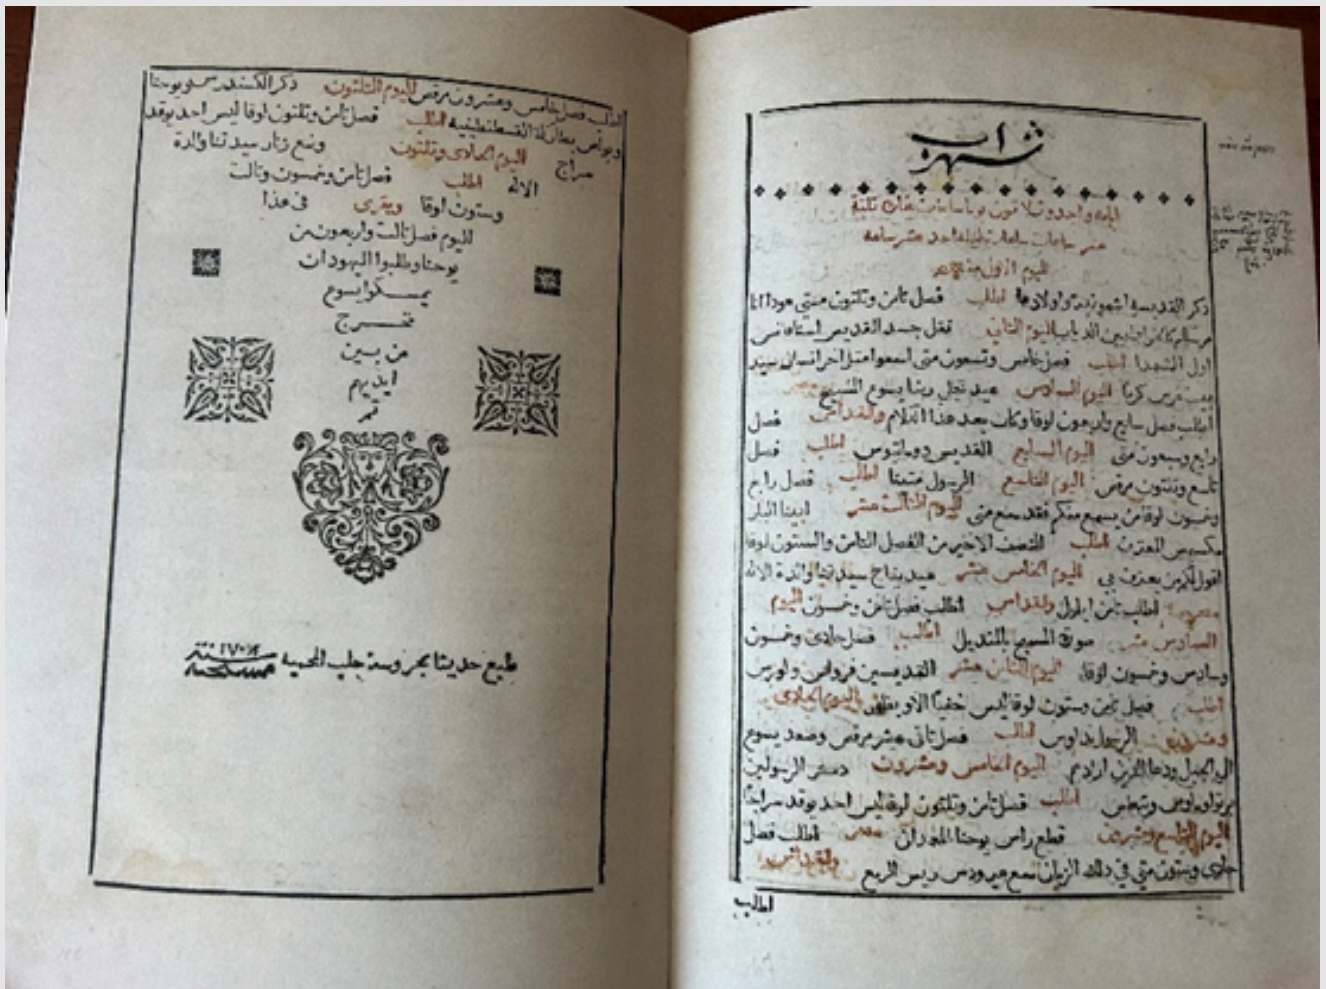 شهر اب
ايامه واحد وثلاثون يوما ساعات نهاره ثلثة
عشر ساعات ساعات ليله احد عشر ساعة
اليوم الاول من شهر
ذكر القديسه اشمونيت واولادها اطلب فصل ثامن وثلثون متى هودا انا
مرسلكم كالخراف بين الدياب اليوم الثاني نقل جسد القديس استافانس
اول الشهدا اطلب فصل خامس وتسعون متى اسمعوا مثل اخر انسان سيد
بيت غرس كرما اليوم السادس عيد تجلي ربنا يسوع المسيح
اطلب فصل سابع واربعون لوقا وكان بعد هذا الكلام والقداس فصل
رابع وسبعون متى اليوم السابع القديس دوماتيوس اطلب فصل
تاسع وثلثون مرقص اليوم التاسع الرسول متيا اطلب فصل رابع
وخمسون لوقا من يسمع منكم فقد سمع منى اليوم الثالث عشر ابينا البار
مكسيمس المعترف اطلب النصف الاخير من الفصل الثامن والستون لوقا
اقول لكم من يعترف بي اليوم الخامس عشر عيد نياح سيدتنا والدة الاله
اطلب ثامن ايلول والقداس اطلب فصل ثامن وخمسون اليوم
السادس عشر صورة المسيح بالمنديل اطلب فصل حادى وخمسون
وسادس وخمسون لوقا اليوم الثامن عشر القديسين فرولس ولورس
اطلب فصل ثامن وستون لوقا ليس خفيا الا ويظهر اليوم الحادى
وعشرون الرسول تداوس اطلب فصل ثانى عشر مرقص وصعد يسوع
الى الجبل ودعا الذين ارادهم اليوم الخامس وعشرون دستر الرسولين
برتولوماوس وتيطس اطلب فصل ثامن وثلثون لوقا ليس احد يوقد سراجا
اليوم التاسع وعشرون قطع راس يوحنا المعمدان اطلب فصل
حادى وستون متى في ذلك الزمان سمع هيرودس ريس الربع والقداس
اطلب
اطلب فصل خامس وعشرون مرقص اليوم الثلثون ذكر الكسندرس ويوحنا
وبولس بطاركة القسطنطينيه اطلب فصل ثامن وثلثون لوقا ليس احد يوقد
سراج اليوم الحادى وثلثون وضع زنار سيدتنا والدة
الاله اطلب فصل ثامن وخمسون وثالث
وستون لوقا ويقرى في هذا
اليوم فصل ثالث واربعون من
يوحنا وطلبوا اليهود ان
يمسكوا يسوع
فخرج
من بين
ايديهم
تم
طبع حديثا بمحروسة حلب المحمية سنة ١٧٠٦ مسيحية